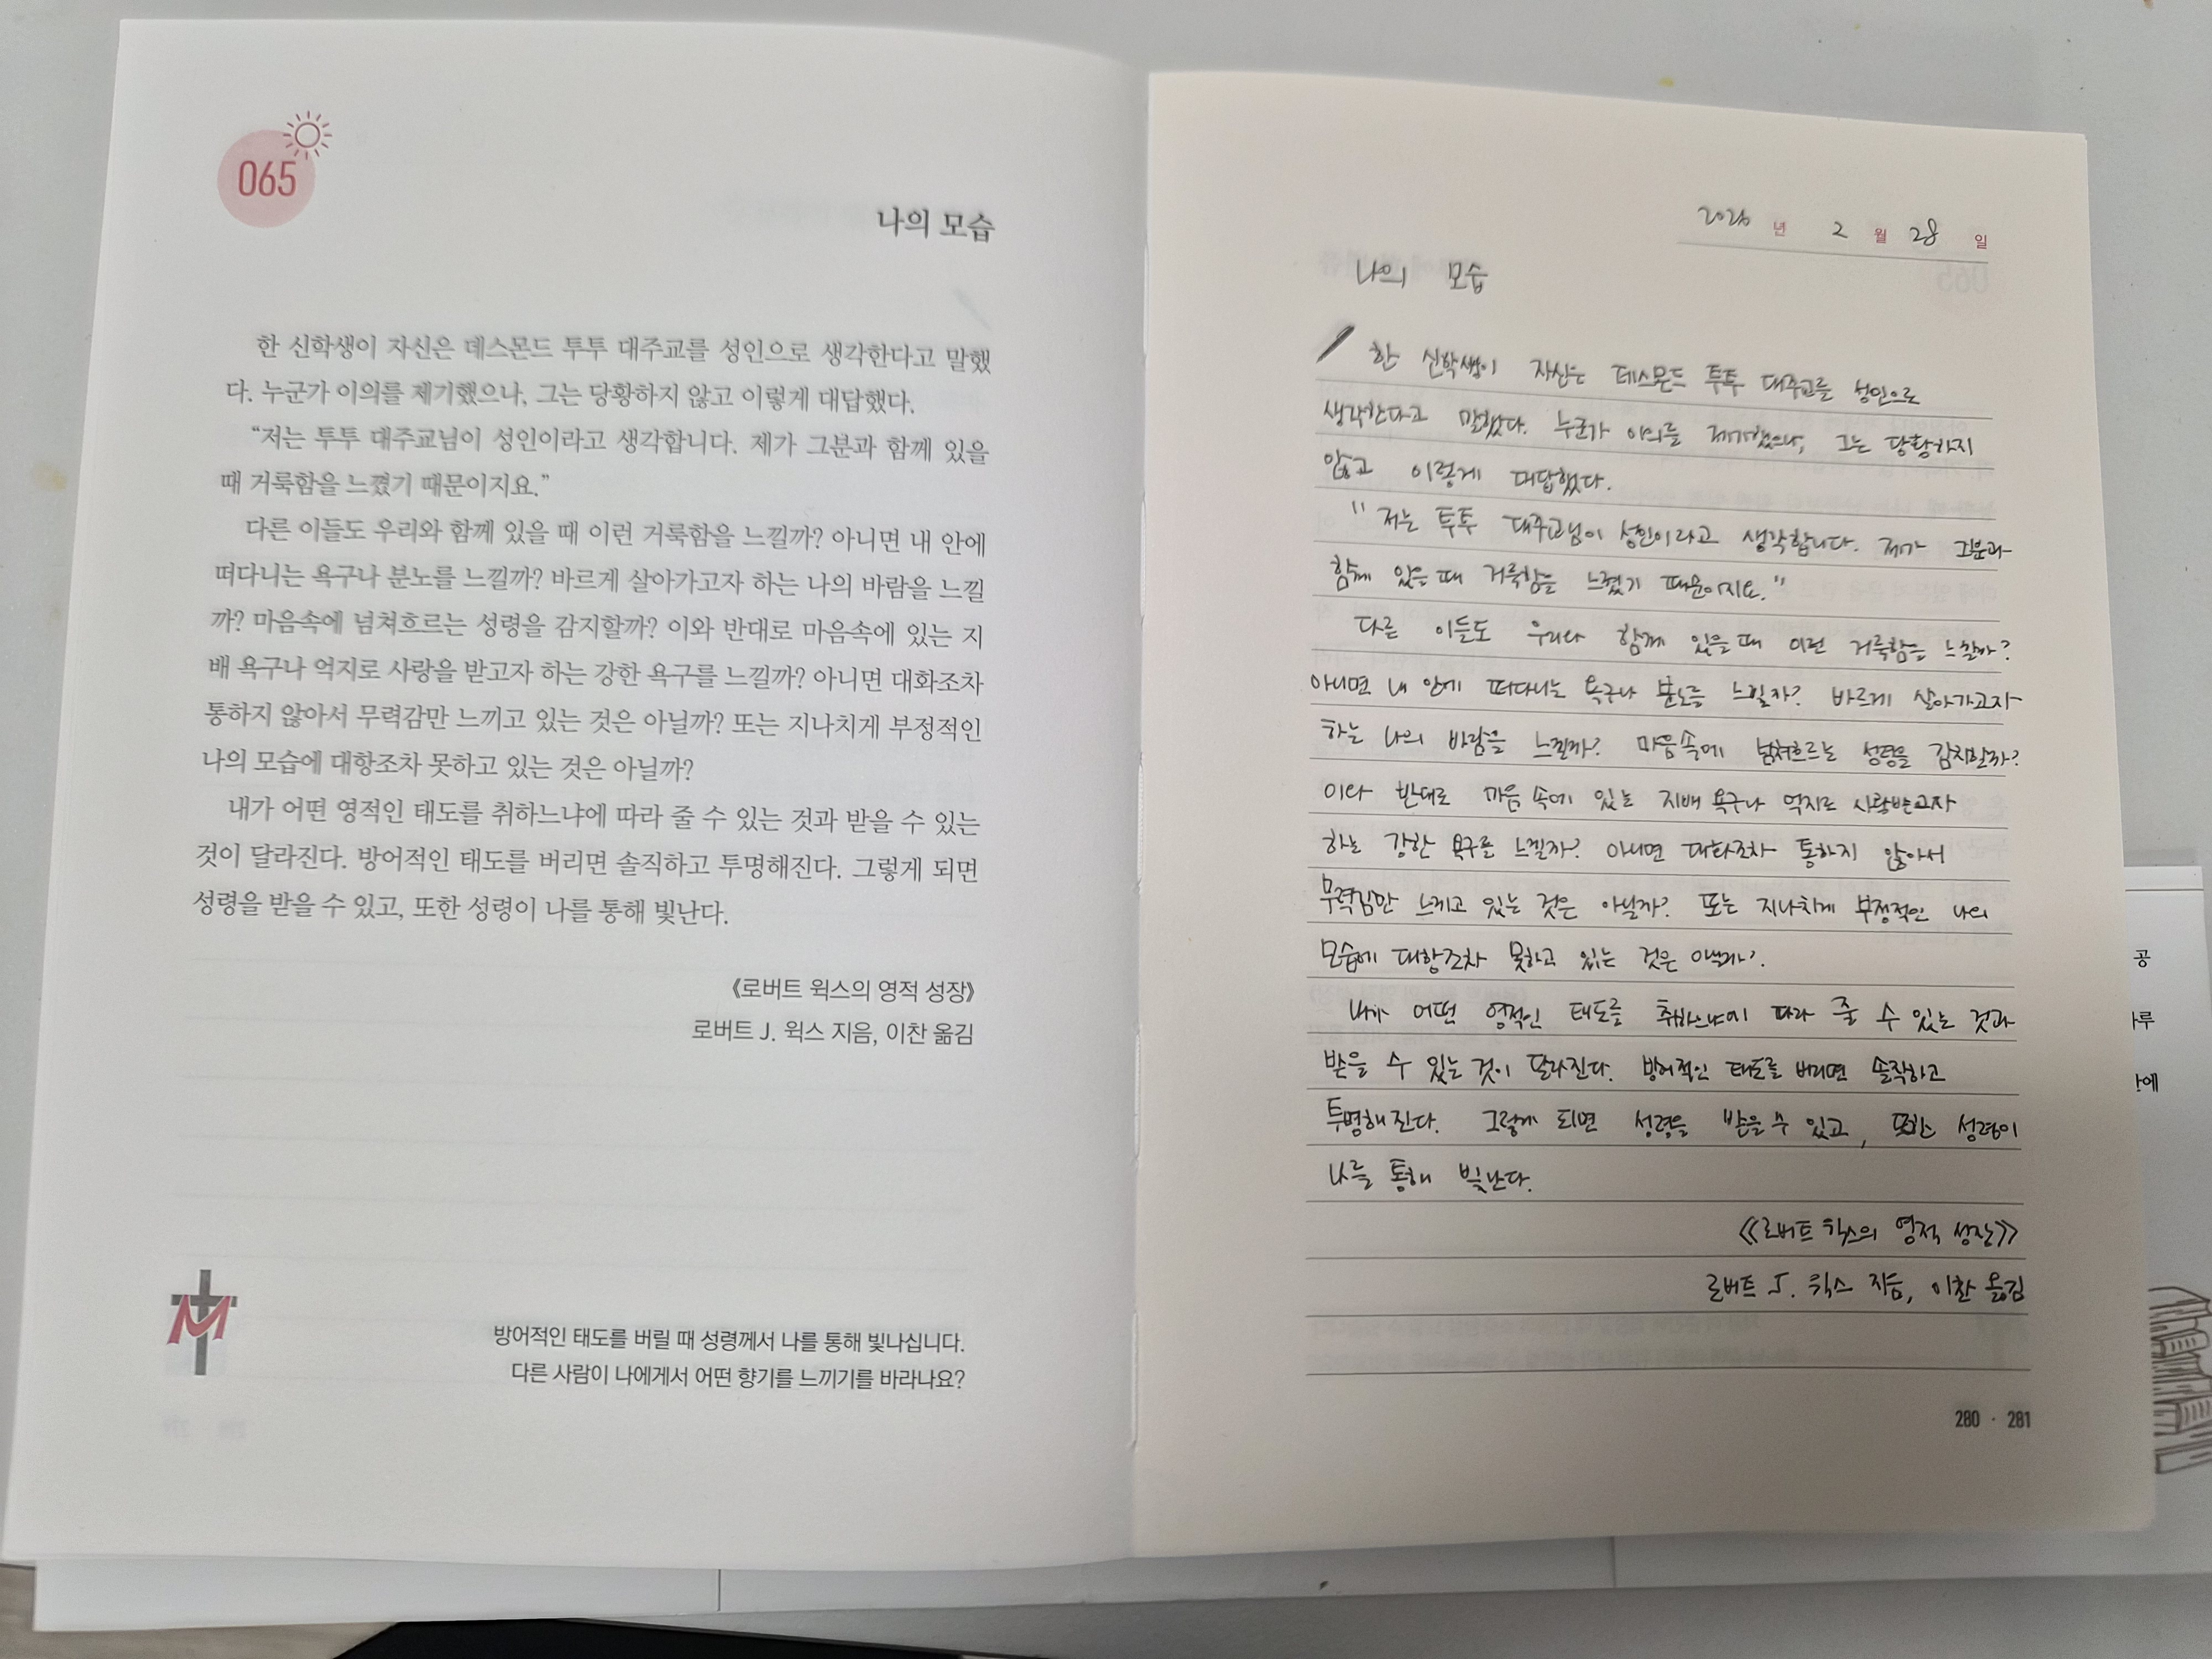 065
나의 모습
한 신학생이 자신은 데스몬드 투투 대주교를 성인으로 생각한다고 말했
다. 누군가 이의를 제기했으나, 그는 당황하지 않고 이렇게 대답했다.
“저는 투투 대주교님이 성인이라고 생각합니다. 제가 그분과 함께 있을
때 거룩함을 느꼈기 때문이지요.”
다른 이들도 우리와 함께 있을 때 이런 거룩함을 느낄까? 아니면 내 안에
떠다니는 욕구나 분노를 느낄까? 바르게 살아가고자 하는 나의 바람을 느낄
까? 마음속에 넘쳐흐르는 성령을 감지할까? 이와 반대로 마음속에 있는 지
배 욕구나 억지로 사랑을 받고자 하는 강한 욕구를 느낄까? 아니면 대화조차
통하지 않아서 무력감만 느끼고 있는 것은 아닐까? 또는 지나치게 부정적인
나의 모습에 대항조차 못하고 있는 것은 아닐까?
내가 어떤 영적인 태도를 취하느냐에 따라 줄 수 있는 것과 받을 수 있는
것이 달라진다. 방어적인 태도를 버리면 솔직하고 투명해진다. 그렇게 되면
성령을 받을 수 있고, 또한 성령이 나를 통해 빛난다.
《로버트 윅스의 영적 성장》
로버트 J. 윅스 지음, 이찬 옮김
M
방어적인 태도를 버릴 때 성령께서 나를 통해 빛나십니다.
다른 사람이 나에게서 어떤 향기를 느끼기를 바라나요?
2026 년 2 월 28 일
나의 모습
한 신학생이 자신은 데스몬드 투투 대주교를 성인으로
생각한다고 말했다. 누군가 이의를 제기했으나, 그는 당황하지
않고 이렇게 대답했다.
"저는 투투 대주교님이 성인이라고 생각합니다. 제가 그분과
함께 있을 때 거룩함을 느꼈기 때문이지요."
다른 이들도 우리와 함께 있을 때 이런 거룩함을 느낄까?
아니면 내 안에 떠다니는 욕구나 분노를 느낄까? 바르게 살아가고자
하는 나의 바람을 느낄까? 마음속에 넘쳐흐르는 성령을 감지할까?
이와 반대로 마음 속에 있는 지배 욕구나 억지로 사랑받고자
하는 강한 욕구를 느낄까? 아니면 대화조차 통하지 않아서
무력감만 느끼고 있는 것은 아닐까? 또는 지나치게 부정적인 나의
모습에 대항조차 못하고 있는 것은 아닐까?
내가 어떤 영적인 태도를 취하느냐에 따라 줄 수 있는 것과
받을 수 있는 것이 달라진다. 방어적인 태도를 버리면 솔직하고
투명해진다. 그렇게 되면 성령을 받을 수 있고, 또한 성령이
나를 통해 빛난다.
《로버트 윅스의 영적 성장》
로버트 J. 윅스 지음, 이찬 옮김
280 · 281
공